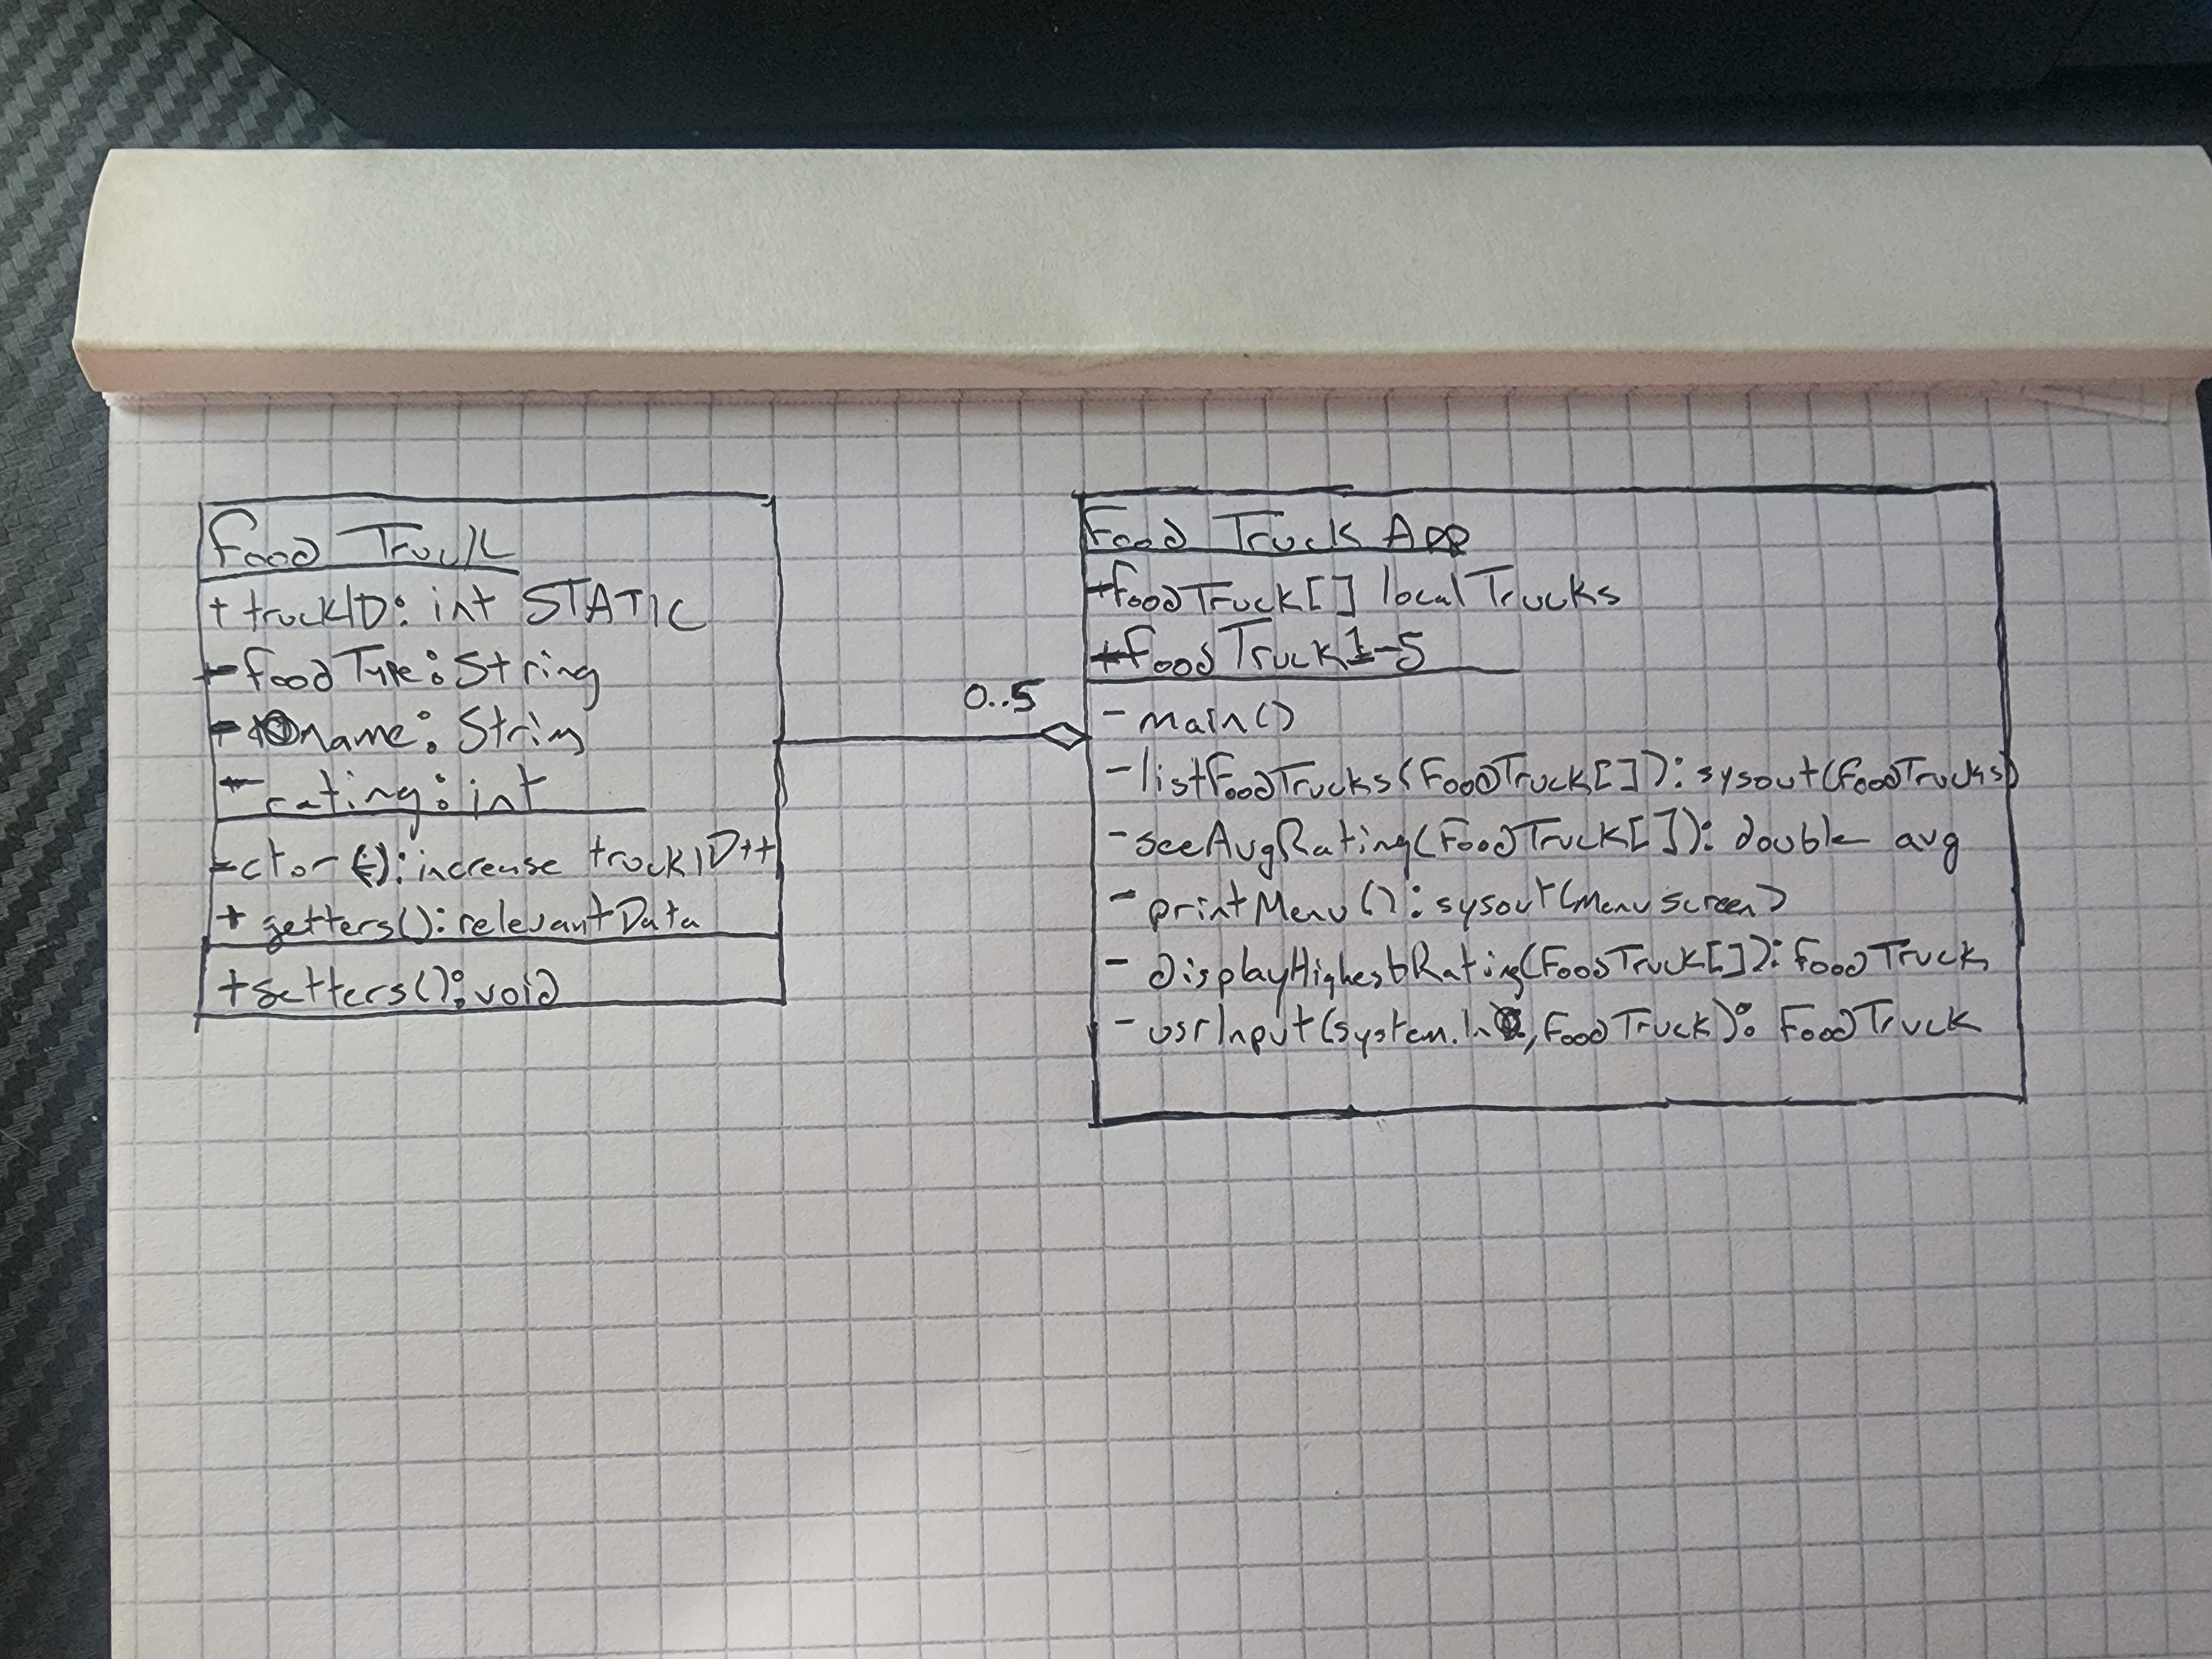 Food Truck
+ truckID: int STATIC
- foodType: String
- name: String
- rating: int
- ctor(): increase truckID++
+ getters(): relevantData
+ setters(): void
0..5
Food Truck App
+ foodTruck[] localTrucks
+ foodTruck1-5
- main()
- listFoodTrucks(FoodTruck[]): sysout(FoodTrucks)
- seeAvgRating(FoodTruck[]): double avg
- printMenu(): sysout(Menu screen)
- displayHighestRating(FoodTruck[]): FoodTruck
- usrInput(system.In, FoodTruck): FoodTruck